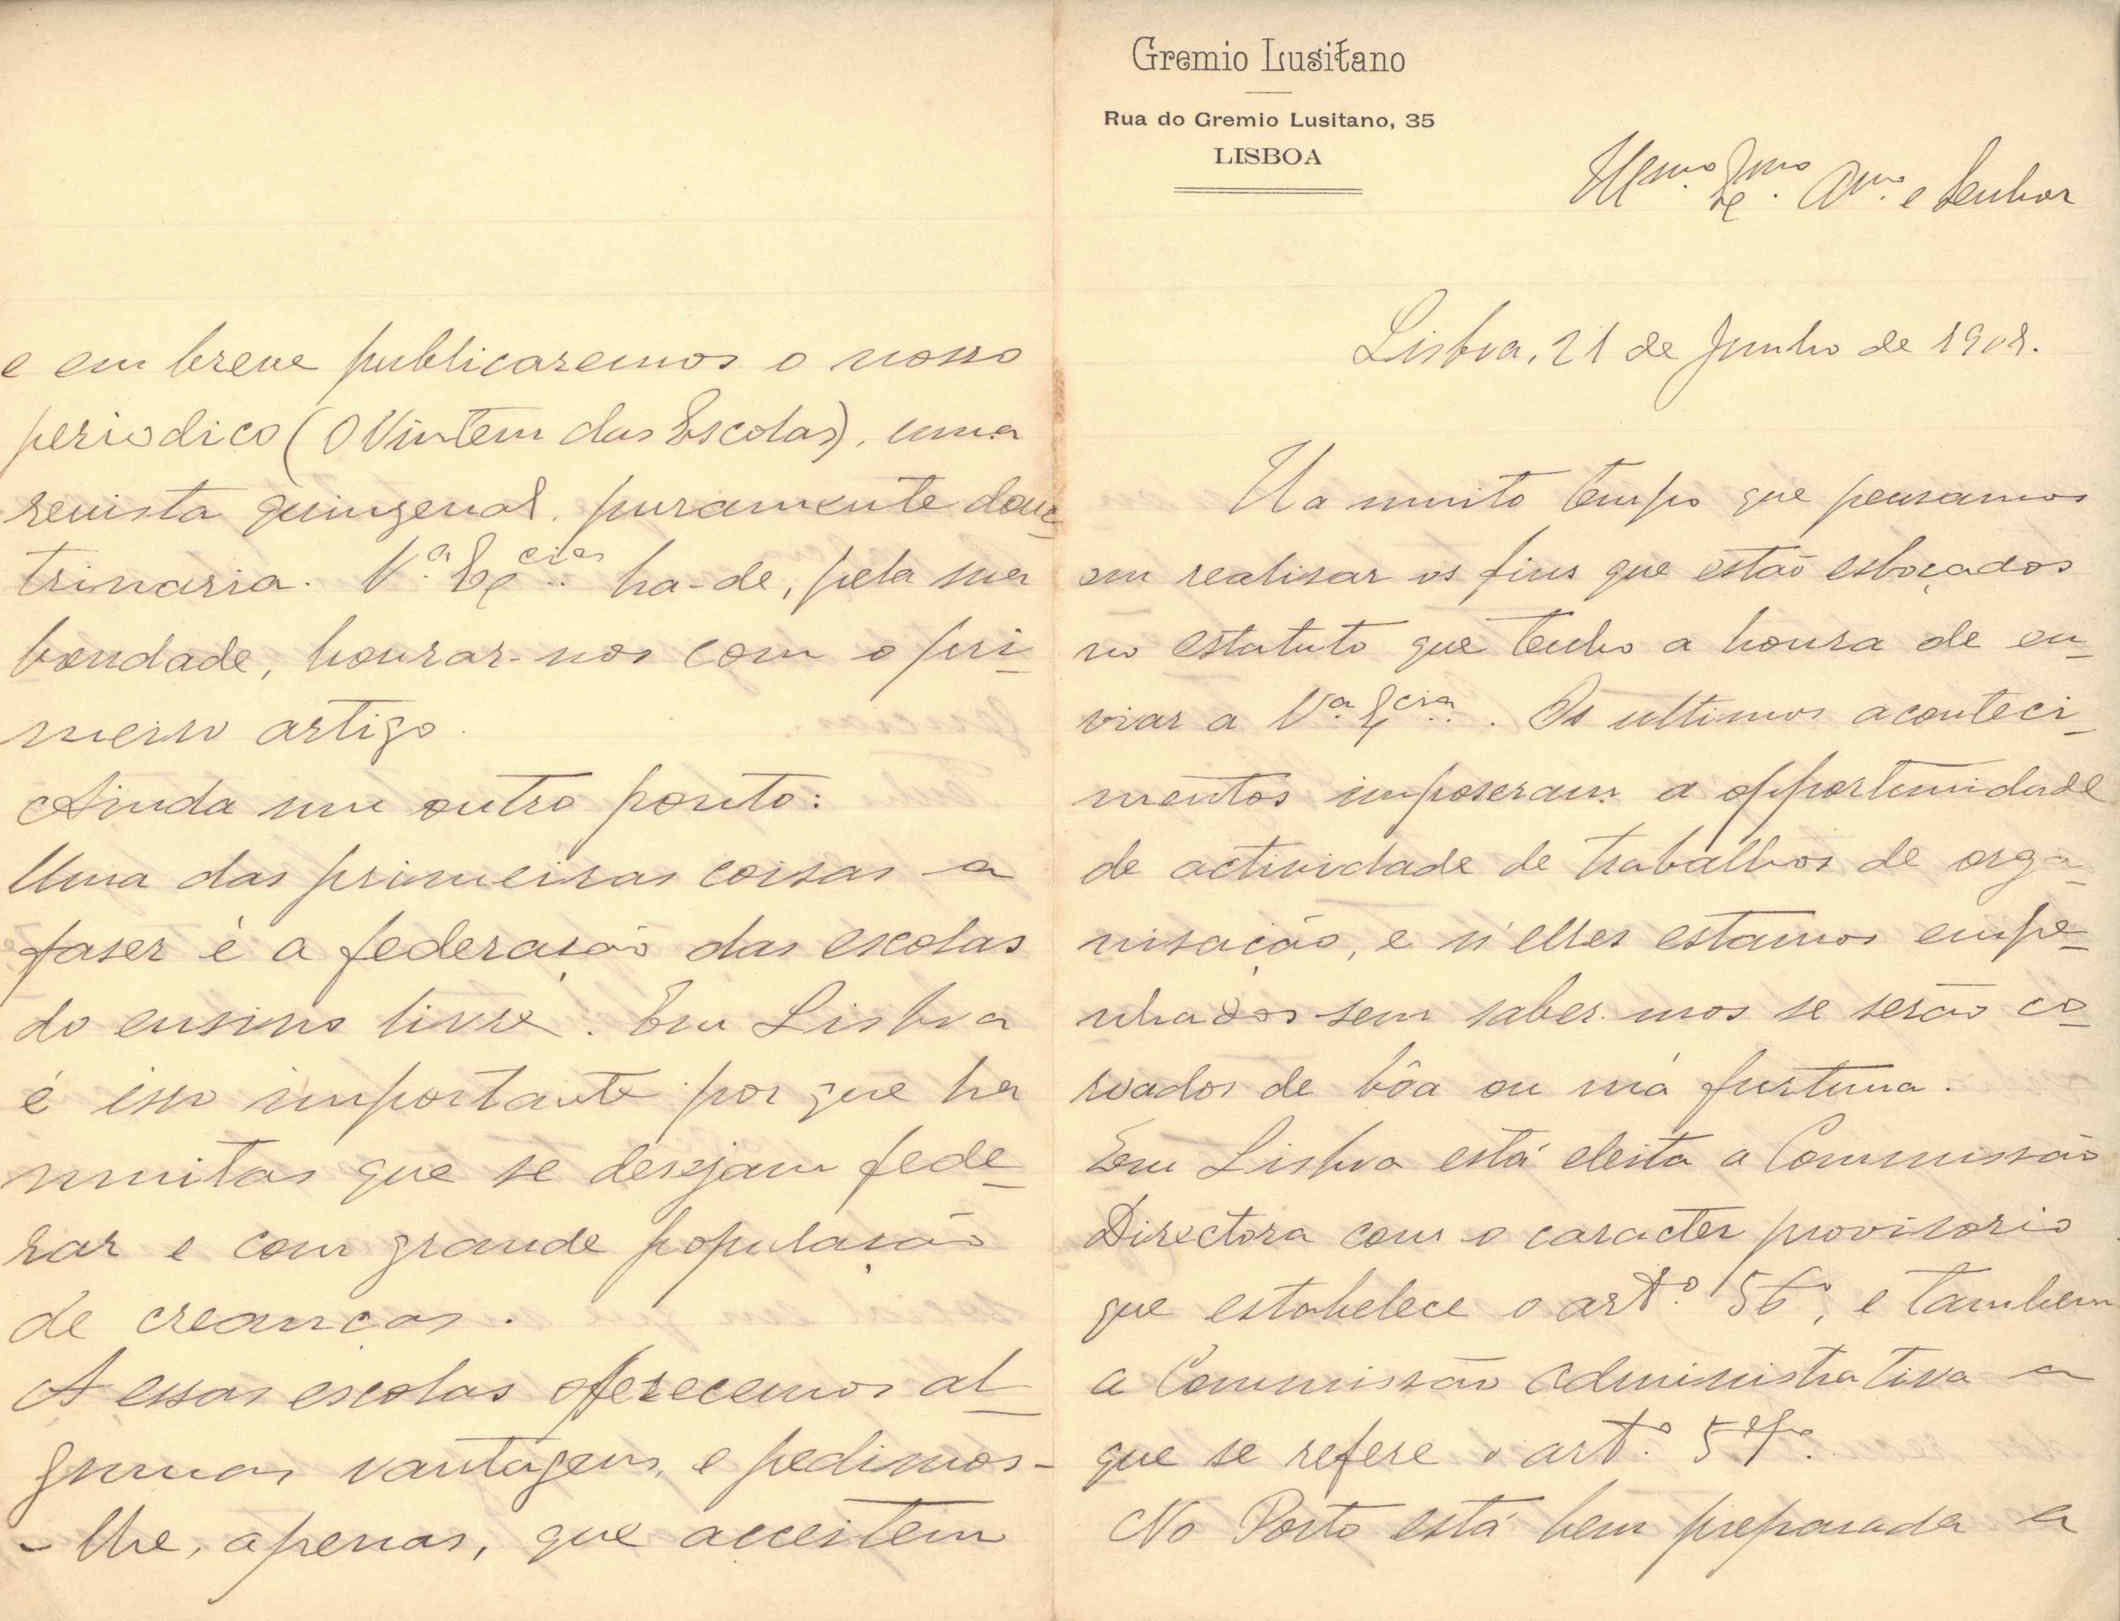 Gremio Lusitano
Rua do Gremio Lusitano, 35
LISBOA
Illmo. Exmo. Amo. e Senhor
Lisboa, 21 de Junho de 1908.
Ha muito tempo que pensamos
em realisar os fins que estão esboçados
no estatuto que tenho a honra de en-
viar a Va. Excia. Os ultimos aconteci-
mentos imposeram a opportunidade
de actividade de trabalhos de orga-
nisação, e n'elles estamos empe-
nhados sem saber-mos se serão co-
roados de bôa ou má furtuna.
Em Lisboa está eleita a Commissão
Directora com o caracter provisorio
que estabelece o arto. 56º, e tambem
a Commissão administrativa a
que se refere o arto. 57º.
No Porto está bem preparada a
e em breve publicaremos o nosso
periodico (O Vintem das Escolas), uma
revista quinzenal, puramente douc-
trinaria. Va. Excia. ha-de, pela sua
bondade, honrar-nos com o pri-
meiro artigo.
Ainda um outro ponto:
Uma das primeiras coisas a
faser é a federação das escolas
do ensino livre. Em Lisboa
é isso importante por que ha
muitas que se desejam fede-
rar e com grande população
de creanças.
A essas escolas offerecemos al-
gumas vantagens, e pedimos-
-lhe, apenas, que acceitem